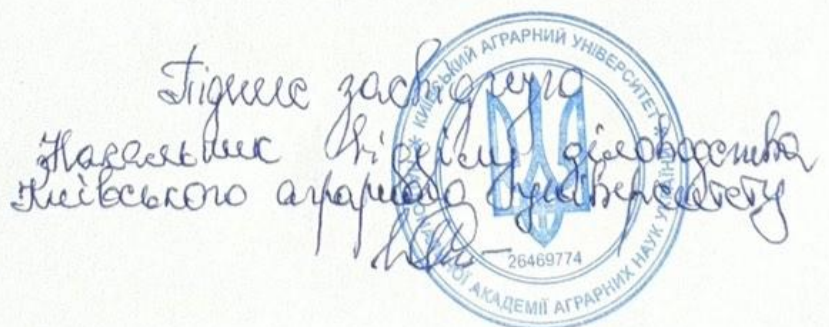 Підпис засвідчую
Начальник відділу діловодства
Київського аграрного університету
КИЇВСЬКИЙ АГРАРНИЙ УНІВЕРСИТЕТ
НАЦІОНАЛЬНОЇ АКАДЕМІЇ АГРАРНИХ НАУК УКРАЇНИ
26469774